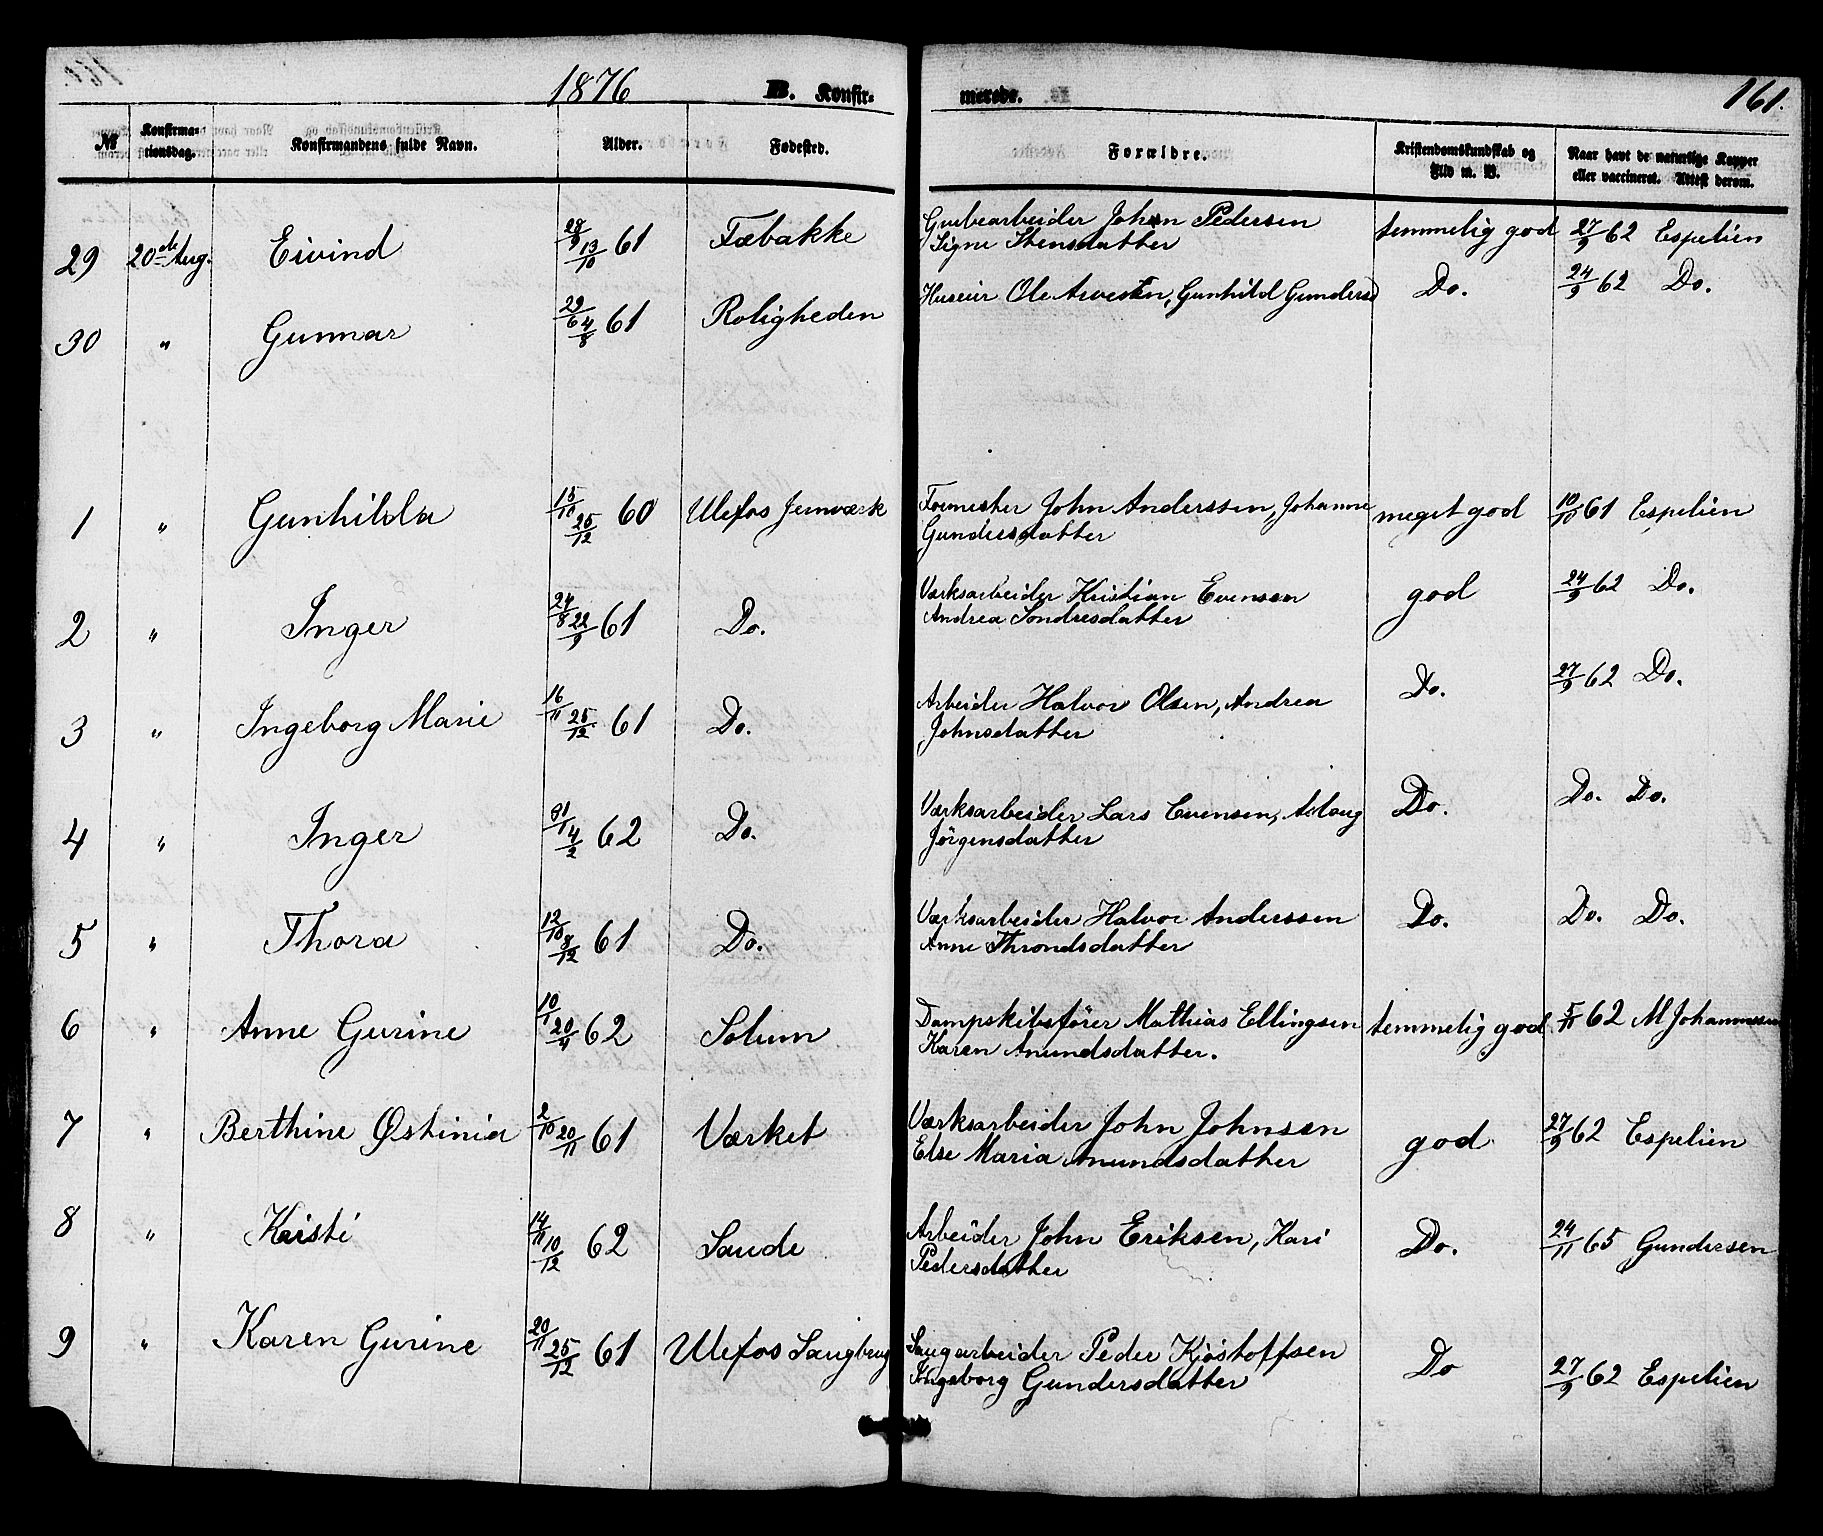 1876 B. Konfir- merede. 161.
№ Konfirma-tionsdag. Konfirmandens fulde Navn. Alder. Fødested. Forældre. Kristendomskundskab og Flid m. V. Naar havt de naturlige Kopper eller vaccineret. Attest derom.
29 20de Aug. Eivind 28/9 13/10 61 Fæbakke Grubearbeider John Pedersen temmelig god 27/9 62 Espelien
Signe Stensdatter
30 " Gunnar 29/6 4/8 61 Roligheden Huseier Ole Arvesen, Gunhild Gundersd Do. 24/9 62 Do.
1 " Gunhilda 15/10 25/12 60 Ulefos Jernværk Formester John Anderssen, Johanne meget god 10/10 61 Espelien
Gundersdatter
2 " Inger 24/8 22/9 61 Do. Værksarbeider Kristian Evensen god 24/9 62 Do.
Andrea Sondresdatter
3 " Ingeborg Marie 16/11 25/12 61 Do. Arbeider Halvor Olsen, Andrea Do. 27/9 62 Do.
Johnsdatter
4 " Inger 4/2 62 Do. Værksarbeider Lars Evensen, Aslaug Do. Do. Do.
Jörgensdatter
5 " Thora 12/10 8/12 61 Do. Værksarbeider Halvor Anderssen Do. Do. Do.
Anne Throndsdatter
6 " Anne Gurine 10/1 20/4 62 Solum Dampskibsfører Mathias Ellingsen temmelig god 5/11 62 M Johannessen
Karen Amundsdatter.
7 " Berthine Østinia 2/10 20/11 61 Værket Værksarbeider John Johnsen god 27/9 62 Espelien
Else Maria Amundsdatter
8 " Kristi 14/11 10/12 62 Saude Arbeider John Eriksen, Kari Do. 24/11 65 Gundersen
Pedersdatter
9 " Karen Gurine 20/11 25/12 61 Ulefos Saugbrug Saugarbeider Peder Kjøstoffsen Do 27/9 62 Espelien
Ingeborg Gundersdatter